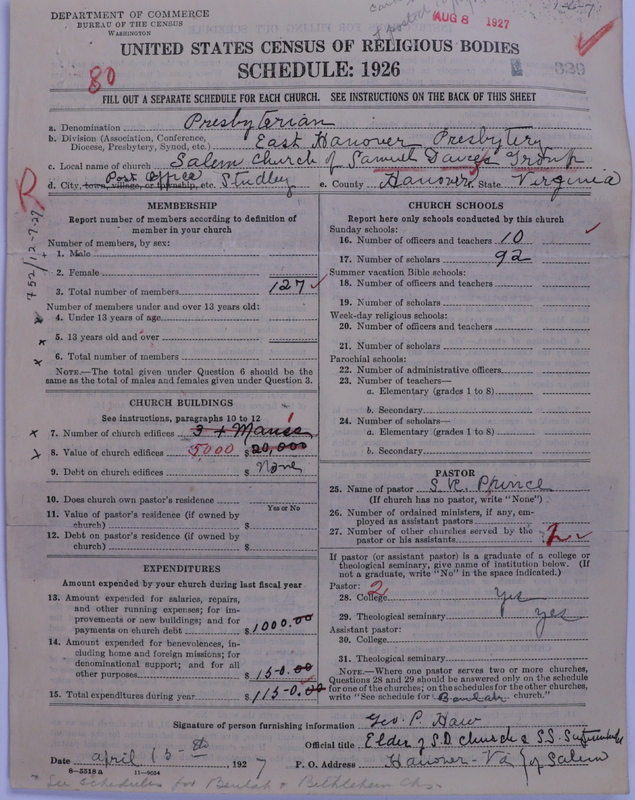 DEPARTMENT OF COMMERCE
BUREAU OF THE CENSUS
WASHINGTON
AUG 8 1927
UNITED STATES CENSUS OF RELIGIOUS BODIES
SCHEDULE: 1926
80
329
FILL OUT A SEPARATE SCHEDULE FOR EACH CHURCH. SEE INSTRUCTIONS ON THE BACK OF THIS SHEET
a. Denomination Presbyterian
b. Division (Association, Conference, Diocese, Presbytery, Synod, etc.) East Hanover Presbytery
c. Local name of church Salem Church of Samuel Davies Group
d. City, town, village, or township, etc. Post Office Studley e. County Hanover f. State Virginia
R
752/12-7-27
MEMBERSHIP
Report number of members according to definition of member in your church
Number of members, by sex:
1. Male
2. Female
3. Total number of members 127
Number of members under and over 13 years old:
4. Under 13 years of age
5. 13 years old and over
6. Total number of members
NOTE.—The total given under Question 6 should be the same as the total of males and females given under Question 3.
CHURCH BUILDINGS
See instructions, paragraphs 10 to 12
7. Number of church edifices 3 + Manse 1
8. Value of church edifices 5000 $ 20,000
9. Debt on church edifices $ None
10. Does church own pastor's residence
Yes or No
11. Value of pastor's residence (if owned by church) $
12. Debt on pastor's residence (if owned by church) $
EXPENDITURES
Amount expended by your church during last fiscal year
13. Amount expended for salaries, repairs, and other running expenses; for improvements or new buildings; and for payments on church debt $ 1000.00
14. Amount expended for benevolences, including home and foreign missions; for denominational support; and for all other purposes $ 150.00
15. Total expenditures during year $ 1150.00
CHURCH SCHOOLS
Report here only schools conducted by this church
Sunday schools:
16. Number of officers and teachers 10
17. Number of scholars 92
Summer vacation Bible schools:
18. Number of officers and teachers
19. Number of scholars
Week-day religious schools:
20. Number of officers and teachers
21. Number of scholars
Parochial schools:
22. Number of administrative officers
23. Number of teachers—
a. Elementary (grades 1 to 8)
b. Secondary
24. Number of scholars—
a. Elementary (grades 1 to 8)
b. Secondary
PASTOR
25. Name of pastor S. R. Prince
(If church has no pastor, write "None")
26. Number of ordained ministers, if any, employed as assistant pastors
27. Number of other churches served by the pastor or his assistants 2
If pastor (or assistant pastor) is a graduate of a college or theological seminary, give name of institution below. (If not a graduate, write "No" in the space indicated.)
Pastor: 2
28. College yes
29. Theological seminary yes
Assistant pastor:
30. College
31. Theological seminary
NOTE.—Where one pastor serves two or more churches, Questions 28 and 29 should be answered only on the schedule for one of the churches; on the schedules for the other churches, write "See schedule for Beulah church."
Signature of person furnishing information Geo. P. Haw
Official title Elder of S.D. Church & S.S. Superintendent of Salem
Date april 15th, 1927 P. O. Address Hanover - Va
8—5518a 11—9034
See schedules for Beulah & Bethlehem Chs.